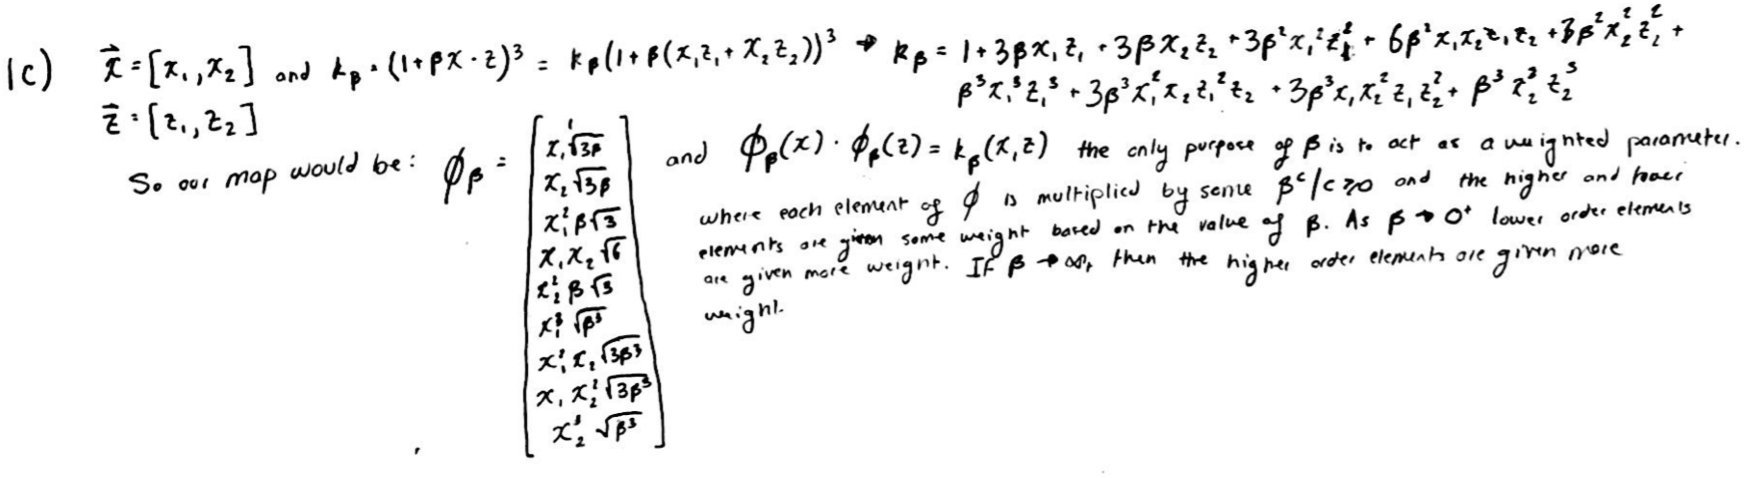 1c) x⃗ = [x₁, x₂] and kβ = (1+βx·z)³ = kβ(1+β(x₁z₁+x₂z₂))³ → kβ = 1+3βx₁z₁+3βx₂z₂+3β²x₁²z₁²+6β²x₁x₂z₁z₂+3β²x₂²z₂²+
z⃗ = [z₁, z₂] β³x₁³z₁³+3β³x₁²x₂z₁²z₂+3β³x₁x₂²z₁z₂²+β³x₂³z₂³
So our map would be: φβ =
1
x₁√3β
x₂√3β
x₁²β√3
x₁x₂√6
x₂²β√3
x₁³√β³
x₁²x₂√3β³
x₁x₂²√3β³
x₂³√β³
and φβ(x)·φβ(z) = kβ(x,z) the only purpose of β is to act as a weighted parameter.
where each element of φ is multiplied by some βᶜ/c≥0 and the higher and lower
elements are given some weight based on the value of β. As β → 0⁺ lower order elements
are given more weight. If β → ∞, then the higher order elements are given more
weight.